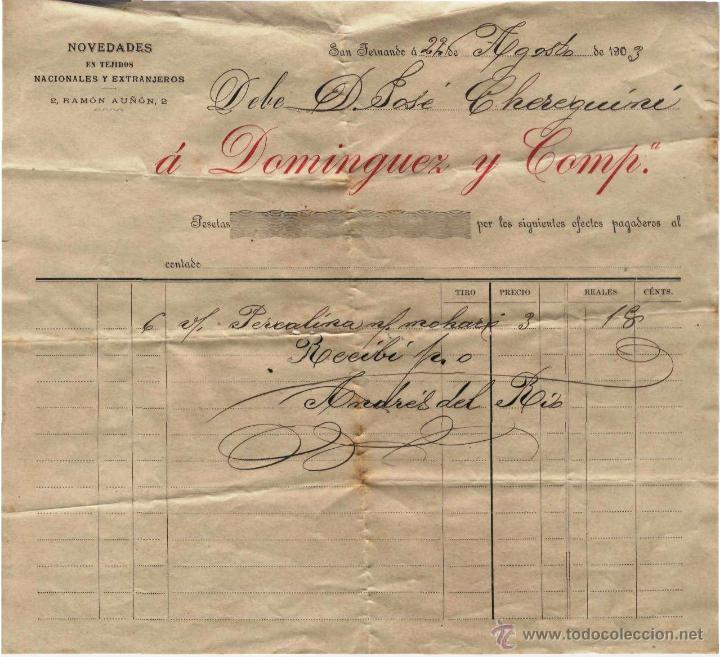 NOVEDADES
EN TEJIDOS
NACIONALES Y EXTRANJEROS
2, RAMÓN AUÑÓN, 2
San Fernando á 22 de Agosto de 1903
Debe D. José Chereguini
á Dominguez y Comp.ª
Pesetas por los siguientes efectos pagaderos al
contado
TIRO PRECIO REALES CÉNTS.
6 v/. Percalina 3 18
Recibi p. o
Andrés del Rio
© www.todocoleccion.net